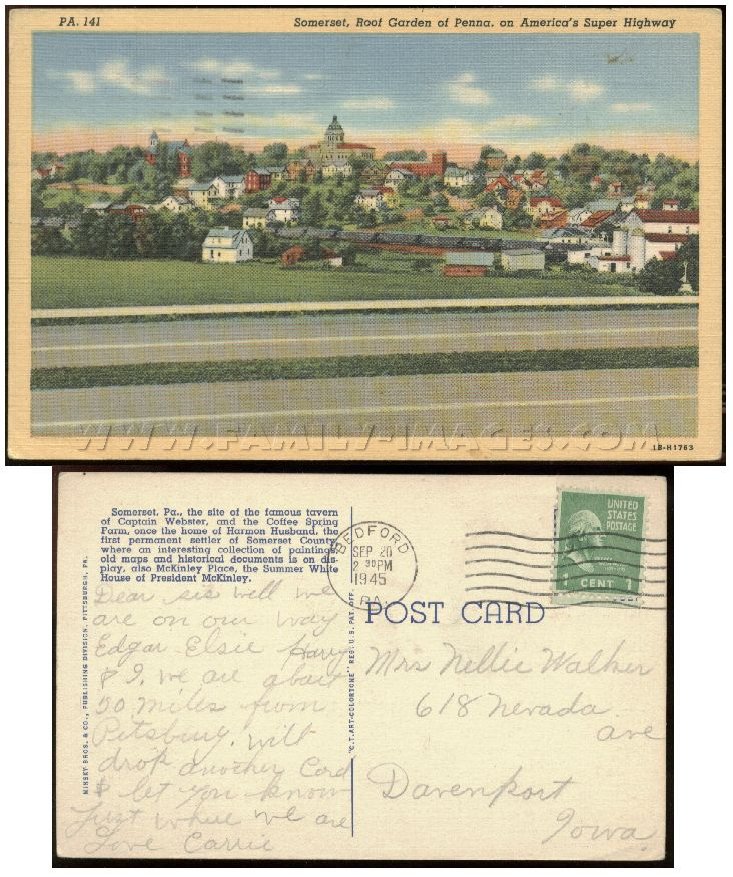 PA. 141
Somerset, Roof Garden of Penna. on America's Super Highway
WWW.FAMILY-IMAGES.COM
1B-H1763
Somerset, Pa., the site of the famous tavern
of Captain Webster, and the Coffee Spring
Farm, once the home of Harmon Husband, the
first permanent settler of Somerset County,
where an interesting collection of paintings,
old maps and historical documents is on dis-
play, also McKinley Place, the Summer White
House of President McKinley.
BEDFORD
SEP 20
2 30 PM
1945
PA.
UNITED
STATES
POSTAGE
1 CENT 1
POST CARD
MINSKY BROS. & CO., PUBLISHING DIVISION, PITTSBURGH, PA.
"C.T. ART-COLORTONE" REG. U.S. PAT. OFF.
Dear sis well we
are on our way
Edgar Elsie Harry
& I. we are about
50 miles from
Pitsburg. will
drop another Card
& let you know
Just where we are
Love Carrie
Mrs Nellie Walker
618 Nevada
ave
Davenport
Iowa